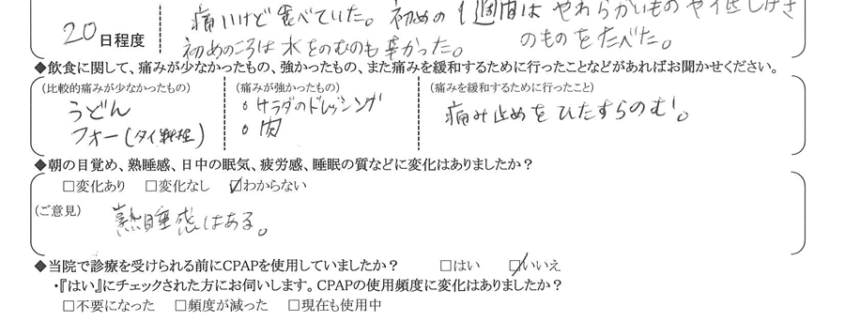 痛いけど食べていた。初めの1週間はやわらかいものや低しげき
20日程度 初めのころは水をのむのも辛かった。 のものをたべた。
◆飲食に関して、痛みが少なかったもの、強かったもの、また痛みを緩和するために行ったことなどがあればお聞かせください。
(比較的痛みが少なかったもの) (痛みが強かったもの) (痛みを緩和するために行ったこと)
うどん 。サラダのドレッシング 痛み止めをひたすらのむ。
フォー(タイ料理) 。肉
◆朝の目覚め、熟睡感、日中の眠気、疲労感、睡眠の質などに変化はありましたか?
□変化あり □変化なし ☑わからない
(ご意見) 熟睡感はある。
◆当院で診療を受けられる前にCPAPを使用していましたか? □はい ☑いいえ
・『はい』にチェックされた方にお伺いします。CPAPの使用頻度に変化はありましたか?
□不要になった □頻度が減った □現在も使用中